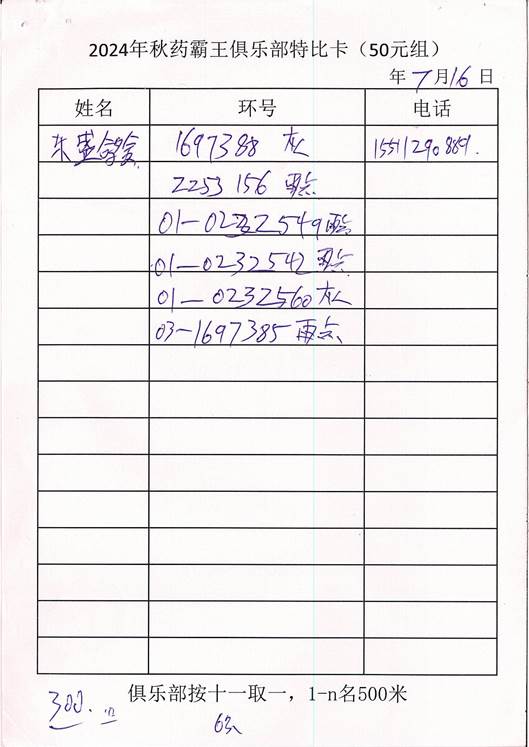 2024年秋药霸王俱乐部特比卡（50元组）
年 7月16日
姓名 环号 电话
东盛鸽舍 1697388 灰 15511290889.
2253156 雨点
01-0232549 雨点
01-0232542 雨点
01-0232560 灰
03-1697385 雨点
俱乐部按十一取一，1-n名500米
300.